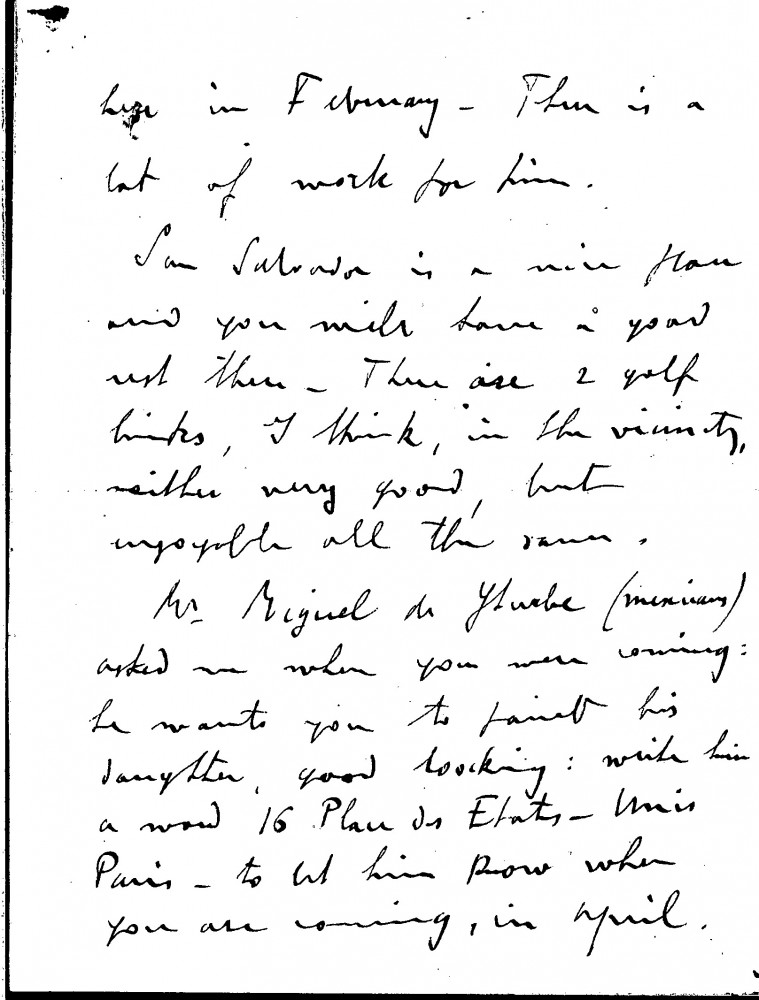 here in February - There is a
lot of work for him.
San Salvador is a nice place
and you will have a good
rest there - There are 2 golf
links, I think, in the vicinity,
neither very good, but
enjoyable all the same.
Mr. Miguel de Yturbe (mexicans)
asked me when you were coming:
he wants you to paint his
daughter, good loocking: write him
a word 16 Place des Etats-Unis
Paris - to let him know when
you are coming, in april.